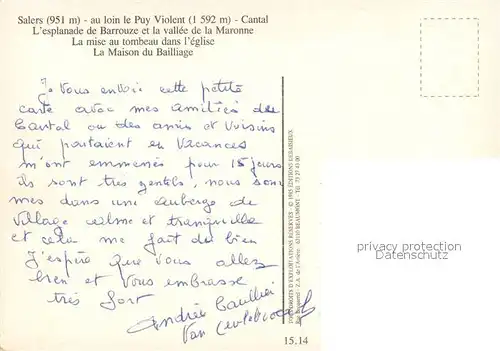 Salers (951 m) - au loin le Puy Violent (1 592 m) - Cantal
L'esplanade de Barrouze et la vallée de la Maronne
La mise au tombeau dans l'église
La Maison du Bailliage
Je vous envoie cette petite
carte avec mes amitiés du
Cantal ou des amis et voisins
qui partaient en vacances
m'ont emmenés pour 15 jours
ils sont très gentils, nous som
mes dans une auberge de
village calme et tranquille
et cela me fait du bien
J'espère que vous allez
bien et vous embrasse
très fort
Andrée
Van
TOUS DROITS D'EXPLOITATIONS RÉSERVÉS - © 1985 ÉDITIONS DEBAISIEUX
63110 BEAUMONT
privacy protection
VERANDACARDS
15.14